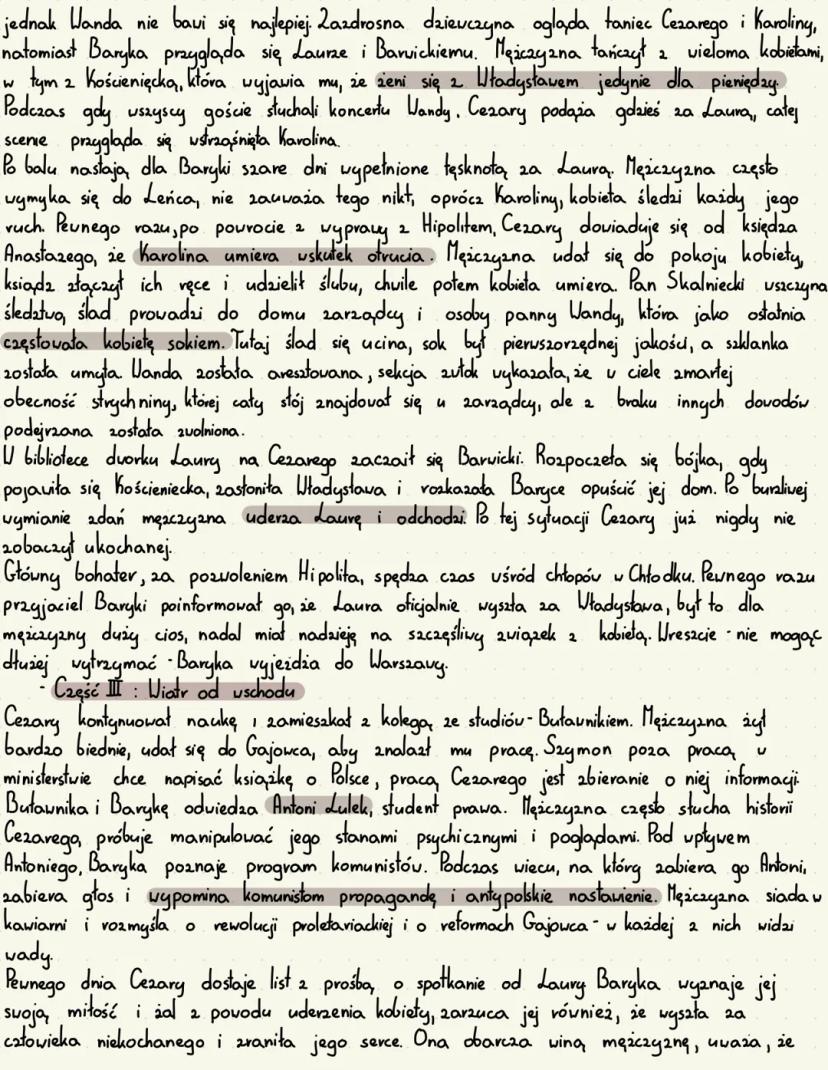 jednak Wanda nie bawi się najlepiej. Zazdrosna dziewczyna ogląda taniec Cezarego i Karoliny,
natomiast Baryka przygląda się Laurze i Barwickiemu. Mężczyzna tańczył z wieloma kobietami,
w tym z Kościenięcką, która wyjawia mu, że żeni się z Władysławem jedynie dla pieniędzy.
Podczas gdy wszyscy goście słuchali koncertu Wandy, Cezary podąża gdzieś za Laurą, całej
scenie przygląda się wstrząśnięta Karolina.
Po balu nastają dla Baryki szare dni wypełnione tęsknotą za Laurą. Mężczyzna często
wymyka się do Leńca, nie zauważa tego nikt, oprócz Karoliny, kobieta śledzi każdy jego
ruch. Pewnego razu, po powrocie z wyprawy z Hipolitem, Cezary dowiaduje się od księdza
Anastazego, że Karolina umiera wskutek otrucia. Mężczyzna udał się do pokoju kobiety,
ksiądz złączył ich ręce i udzielił ślubu, chwile potem kobieta umiera. Pan Skalniecki wszczyna
śledztwo, ślad prowadzi do domu zarządcy i osoby panny Wandy, która jako ostatnia
częstowała kobietę sokiem. Tutaj ślad się ucina, sok był pierwszorzędnej jakości, a szklanka
została umyta. Wanda została aresztowana, sekcja zwłok wykazała, że w ciele zmarłej
obecność strychniny, której cały słój znajdował się u zarządcy, ale z braku innych dowodów
podejrzana została zwolniona.
W bibliotece dworku Laury na Cezarego zaczaił się Barwicki. Rozpoczęła się bójka, gdy
pojawiła się Kościeniecka, zasłoniła Władysława i rozkazała Baryce opuścić jej dom. Po burzliwej
wymianie zdań mężczyzna uderza Laurę i odchodzi. Po tej sytuacji Cezary już nigdy nie
zobaczył ukochanej.
Główny bohater, za pozwoleniem Hipolita, spędza czas wśród chłopów w Chłodku. Pewnego razu
przyjaciel Baryki poinformował go, że Laura oficjalnie wyszła za Władysława, był to dla
mężczyzny duży cios, nadal miał nadzieję na szczęśliwy związek z kobietą. Wreszcie - nie mogąc
dłużej wytrzymać - Baryka wyjeżdża do Warszawy.
- Część III : Wiatr od wschodu
Cezary kontynuował naukę i zamieszkał z kolegą ze studiów - Buławnikiem. Mężczyzna żył
bardzo biednie, udał się do Gajowca, aby znalazł mu pracę. Szymon poza pracą w
ministerstwie chce napisać książkę o Polsce, pracą Cezarego jest zbieranie o niej informacji.
Buławnika i Barykę odwiedza Antoni Lulek, student prawa. Mężczyzna często słucha historii
Cezarego, próbuje manipulować jego stanami psychicznymi i poglądami. Pod wpływem
Antoniego, Baryka poznaje program komunistów. Podczas wiecu, na który zabiera go Antoni,
zabiera głos i wypomina komunistom propagandę i antypolskie nastawienie. Mężczyzna siada w
kawiarni i rozmyśla o rewolucji proletariackiej i o reformach Gajowca - w każdej z nich widzi
wady.
Pewnego dnia Cezary dostaje list z prośbą o spotkanie od Laury. Baryka wyznaje jej
swoją miłość i żal z powodu uderzenia kobiety, zarzuca jej również, że wyszła za
człowieka niekochanego i zraniła jego serce. Ona obarcza winą mężczyznę, uważa, że